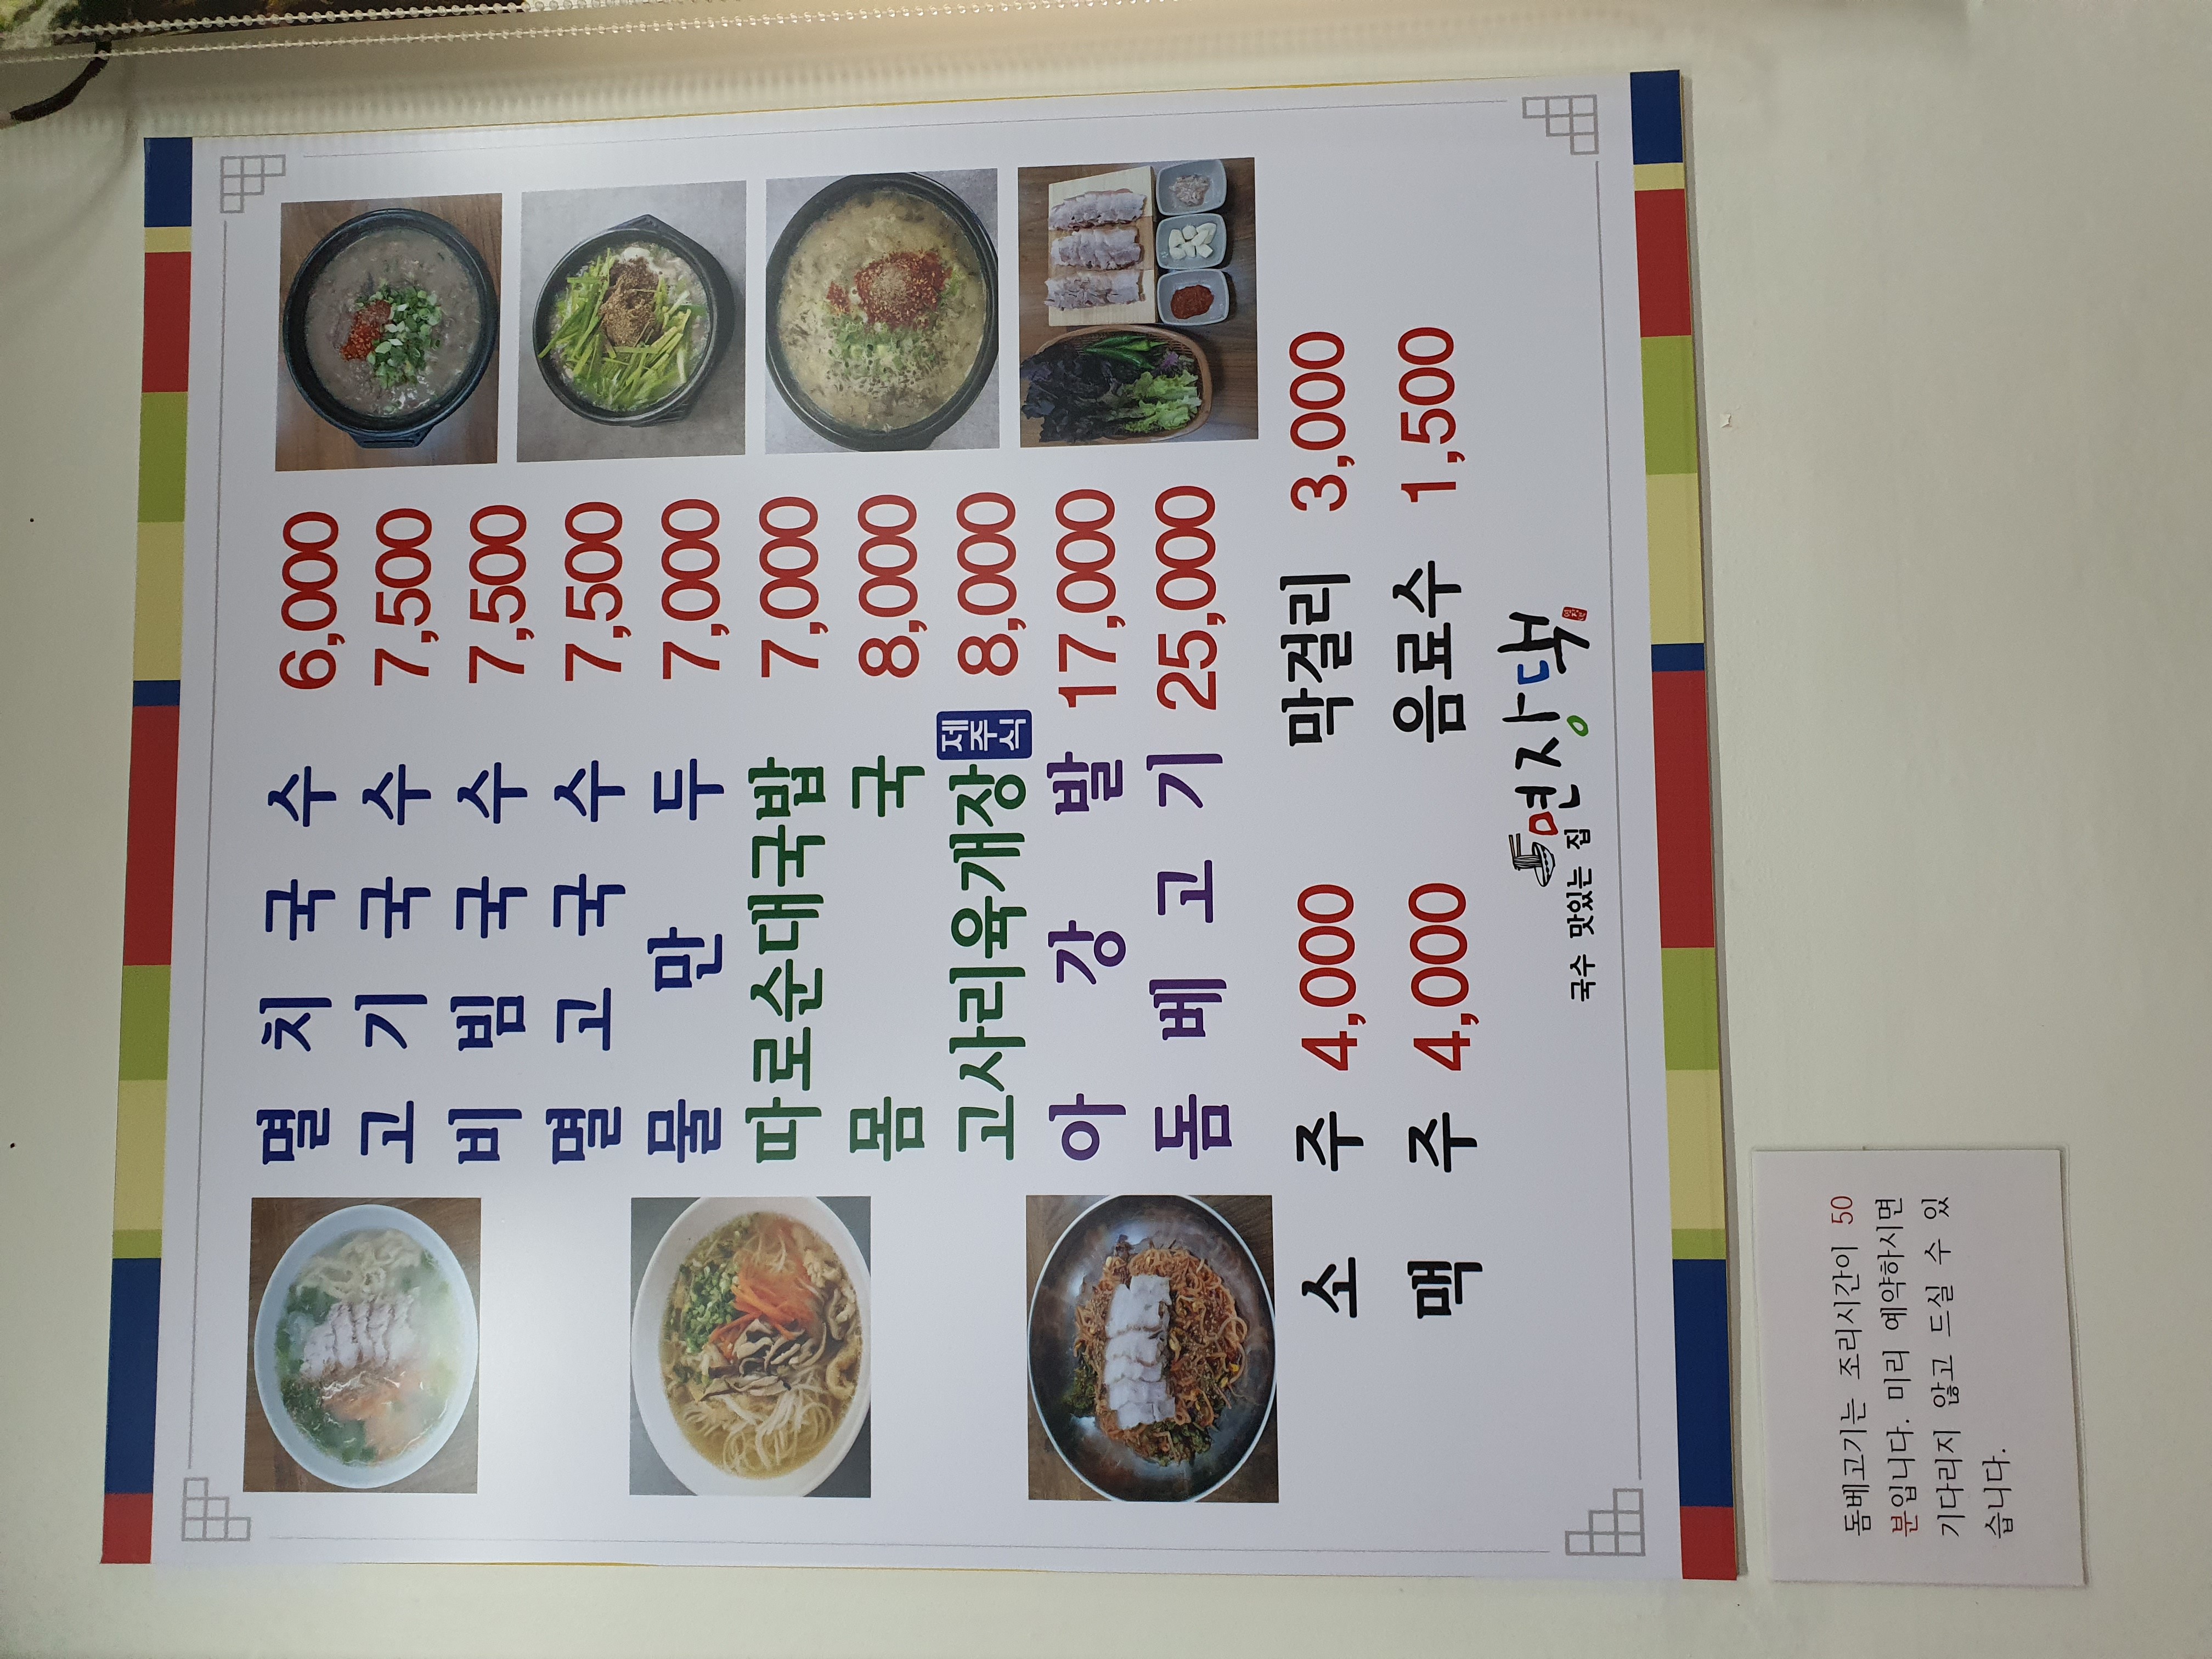 멸치국수 6,000
고기국수 7,500
비빔국수 7,500
멸고국수 7,500
물만두 7,000
따로순대국밥 7,000
몸국 8,000
고사리육개장 제주식 8,000
아강발 17,000
돔베고기 25,000
소주 4,000 막걸리 3,000
맥주 4,000 음료수 1,500
국수 맛있는 집 면장댁
돔베고기는 조리시간이 50
분입니다. 미리 예약하시면
기다리지 않고 드실 수 있
습니다.